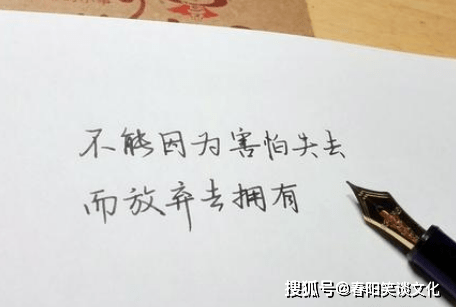 不能因为害怕失去
而放弃去拥有
搜狐号@春阳笑谈文化